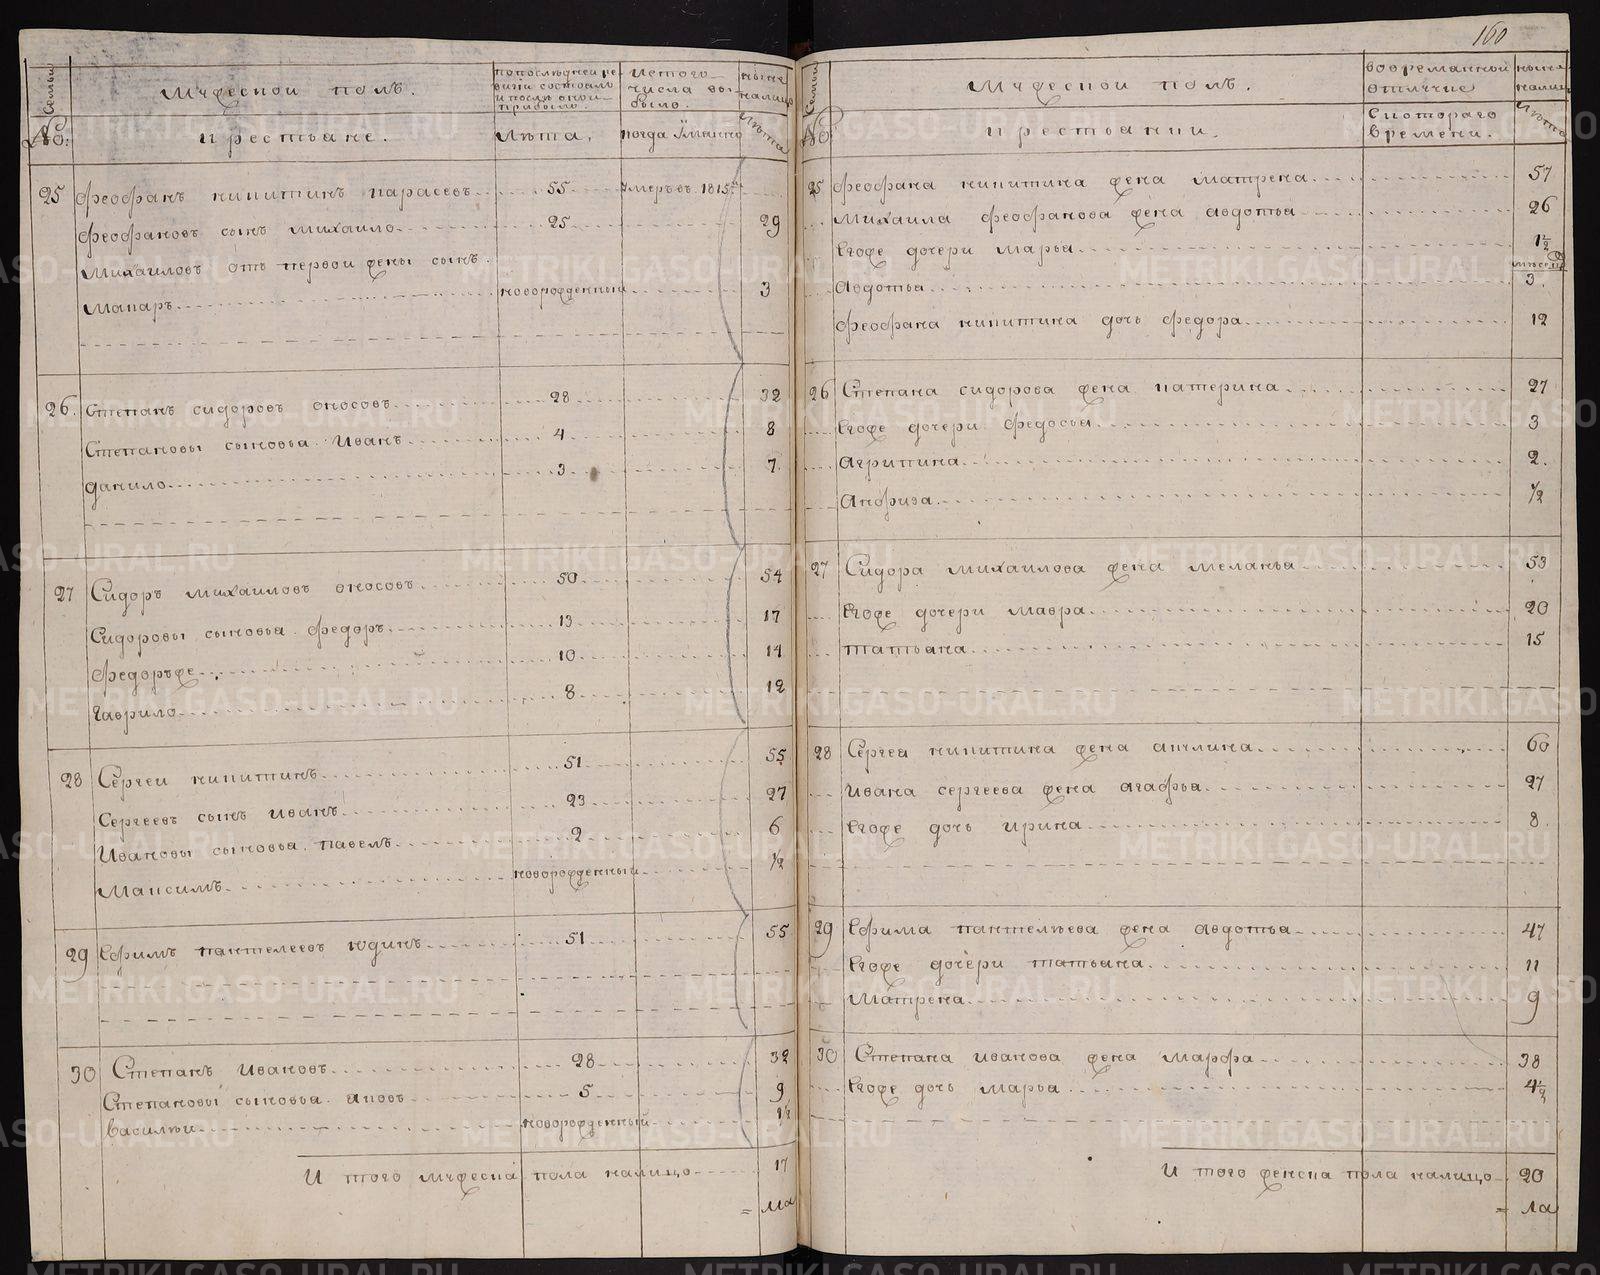 160
Семьи
№.
Мужескои полъ.
по последней ре-
визіи состояло
и после оной
прибыло.
Изтого
числа вы-
было.
ныне
налицо
крестьяне.
Лѣта.
когда Имянно
Лѣта
25 феофанъ никитинъ карасевъ 55 умеръ въ 1815
феофановъ сынъ михаило 25 29
михаиловъ отъ первои жены сынъ
макаръ новорожденный 3
26. Степанъ сидоровъ оносовъ 28 32
Степановы сыновья Иванъ 4 8
данило 3 7.
27 Сидоръ михаиловъ оносовъ 50 54
Сидоровы сыновья федоръ 13 17
федоръже 10 14
гаврило 8 12
28 Сергеи никитинъ 51 55
Сергеевъ сынъ иванъ 23 27
Ивановы сыновья павелъ 2 6
Максимъ новорожденный ½
29 Ефимъ пантелеевъ юдинъ 51 55
30 Степанъ Ивановъ 28 32
Степановы сыновья яковъ 5 9
василеи новорожденный 1½
И того мужеска пола налицо 17
Семьи
№
Мужескои полъ.
вовременной
отлучке
ныне
налицо
крестьянки.
Скотораго
времени.
Лѣта
25 феофана никитина жена матрена 57
михаила феофанова жена авдотья 26
Егоже дочери марья 1½
авдотья 3.
феофана никитина дочь федора 12
26 Степана сидорова жена катерина 27
Егоже дочери федосья 3
агрипина 2.
Анфиза ½
27 Сидора михаилова жена меланья 53
Егоже дочери мавра 20
татьяна 15
28 Сергея никитина жена акулина 60
ивана сергеева жена агафья 27
Егоже дочь ирина 8
29 Ефима пантелѣева жена авдотья 47
Егоже дочери татьяна 11
матрена 9
30 Степана иванова жена марфа 38
Егоже дочь марья 4½
И того женска пола налицо 20